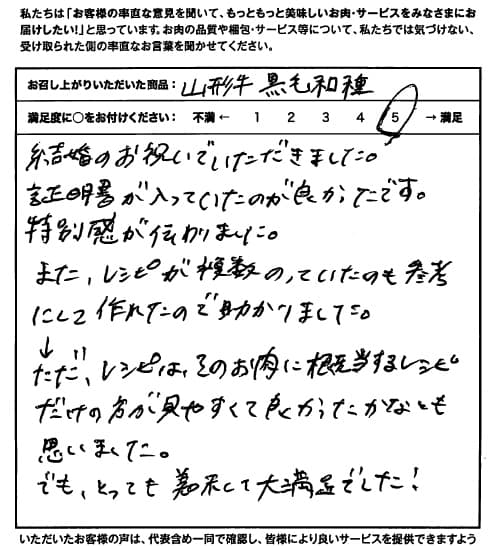 私たちは「お客様の率直な意見を聞いて、もっともっと美味しいお肉・サービスをみなさまにお
届けしたい!」と思っています。お肉の品質や梱包・サービス等について、私たちでは気づけない、
受け取られた側の率直なお言葉を聞かせてください。
お召し上がりいただいた商品： 山形牛 黒毛和種
満足度に○をお付けください： 不満 ← 1 2 3 4 5 → 満足
結婚のお祝いでいただきました。
証明書が入っていたのが良かったです。
特別感が伝わりました。
また、レシピが複数のっていたのも参考
にして作れたので助かりました。
↓
ただ、レシピは、そのお肉に相当するレシピ
だけの方が見やすくて良かったかなとも
思いました。
でも、とっても 大満足でした!
いただいたお客様の声は、代表含め一同で確認し、皆様により良いサービスを提供できますよう